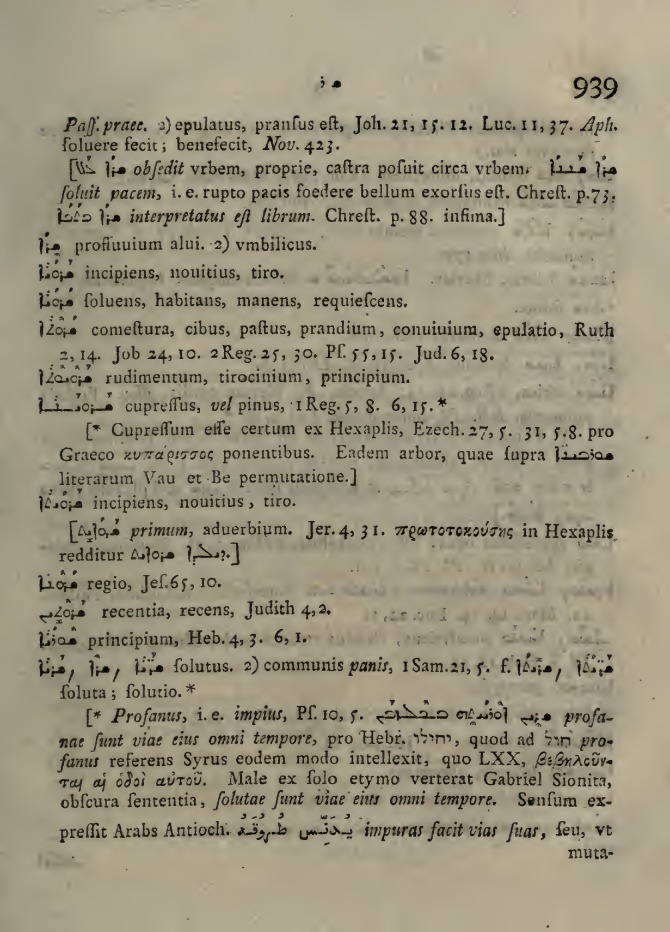 ܫܪ 939
Paſſ. praet. 2) epulatus, pranſus eſt, Joh. 21, 15. 12. Luc. 11, 37. Aph.
ſoluere fecit; benefecit, Nov. 423.
[ܫܪܐ ܥܠ obſedit vrbem, proprie, caſtra poſuit circa vrbem. ܫܪܐ ܫܝܢܐ
ſoluit pacem, i. e. rupto pacis foedere bellum exorſus eſt. Chreſt. p. 73.
ܫܪܐ ܟܬܒܐ interpretatus eſt librum. Chreſt. p. 88. infima.]
ܫܪܐ profluuium alui. 2) vmbilicus.
incipiens, nouitius, tiro.
ſoluens, habitans, manens, requieſcens.
ܫܪܘܬܐ comeſtura, cibus, paſtus, prandium, conuiuium, epulatio, Ruth
2, 14. Job 24, 10. 2 Reg. 25, 30. Pſ. 55, 15. Jud. 6, 18.
rudimentum, tirocinium, principium.
ܫܪܘܝܢܐ cupreſſus, vel pinus, 1 Reg. 5, 8. 6, 15. *
[* Cupreſſum eſſe certum ex Hexaplis, Ezech. 27, 5. 31, 5. 8. pro
Graeco κυπάρισσος ponentibus. Eadem arbor, quae ſupra
literarum Vau et Be permutatione.]
incipiens, nouitius, tiro.
[ primum, aduerbium. Jer. 4, 31. πρωτοτοκούσης in Hexaplis
redditur ]
regio, Jeſ. 65, 10.
recentia, recens, Judith 4, 2.
principium, Heb. 4, 3. 6, 1.
ſolutus. 2) communis panis, 1 Sam. 21, 5. f.
ſoluta; ſolutio. *
[* Profanus, i. e. impius, Pſ. 10, 5. ܫܪܝܢ ܐܘܪܚܬܗ ܒܟܠܙܒܢ profa-
nae ſunt viae eius omni tempore, pro Hebr. יחילו, quod ad חול pro-
fanus referens Syrus eodem modo intellexit, quo LXX, βεβηλοῦν-
ται αἱ ὁδοὶ αὐτοῦ. Male ex ſolo etymo verterat Gabriel Sionita,
obſcura ſententia, ſolutae ſunt viae eius omni tempore. Senſum ex-
preſſit Arabs Antioch. impuras facit vias ſuas, ſeu, vt
muta-